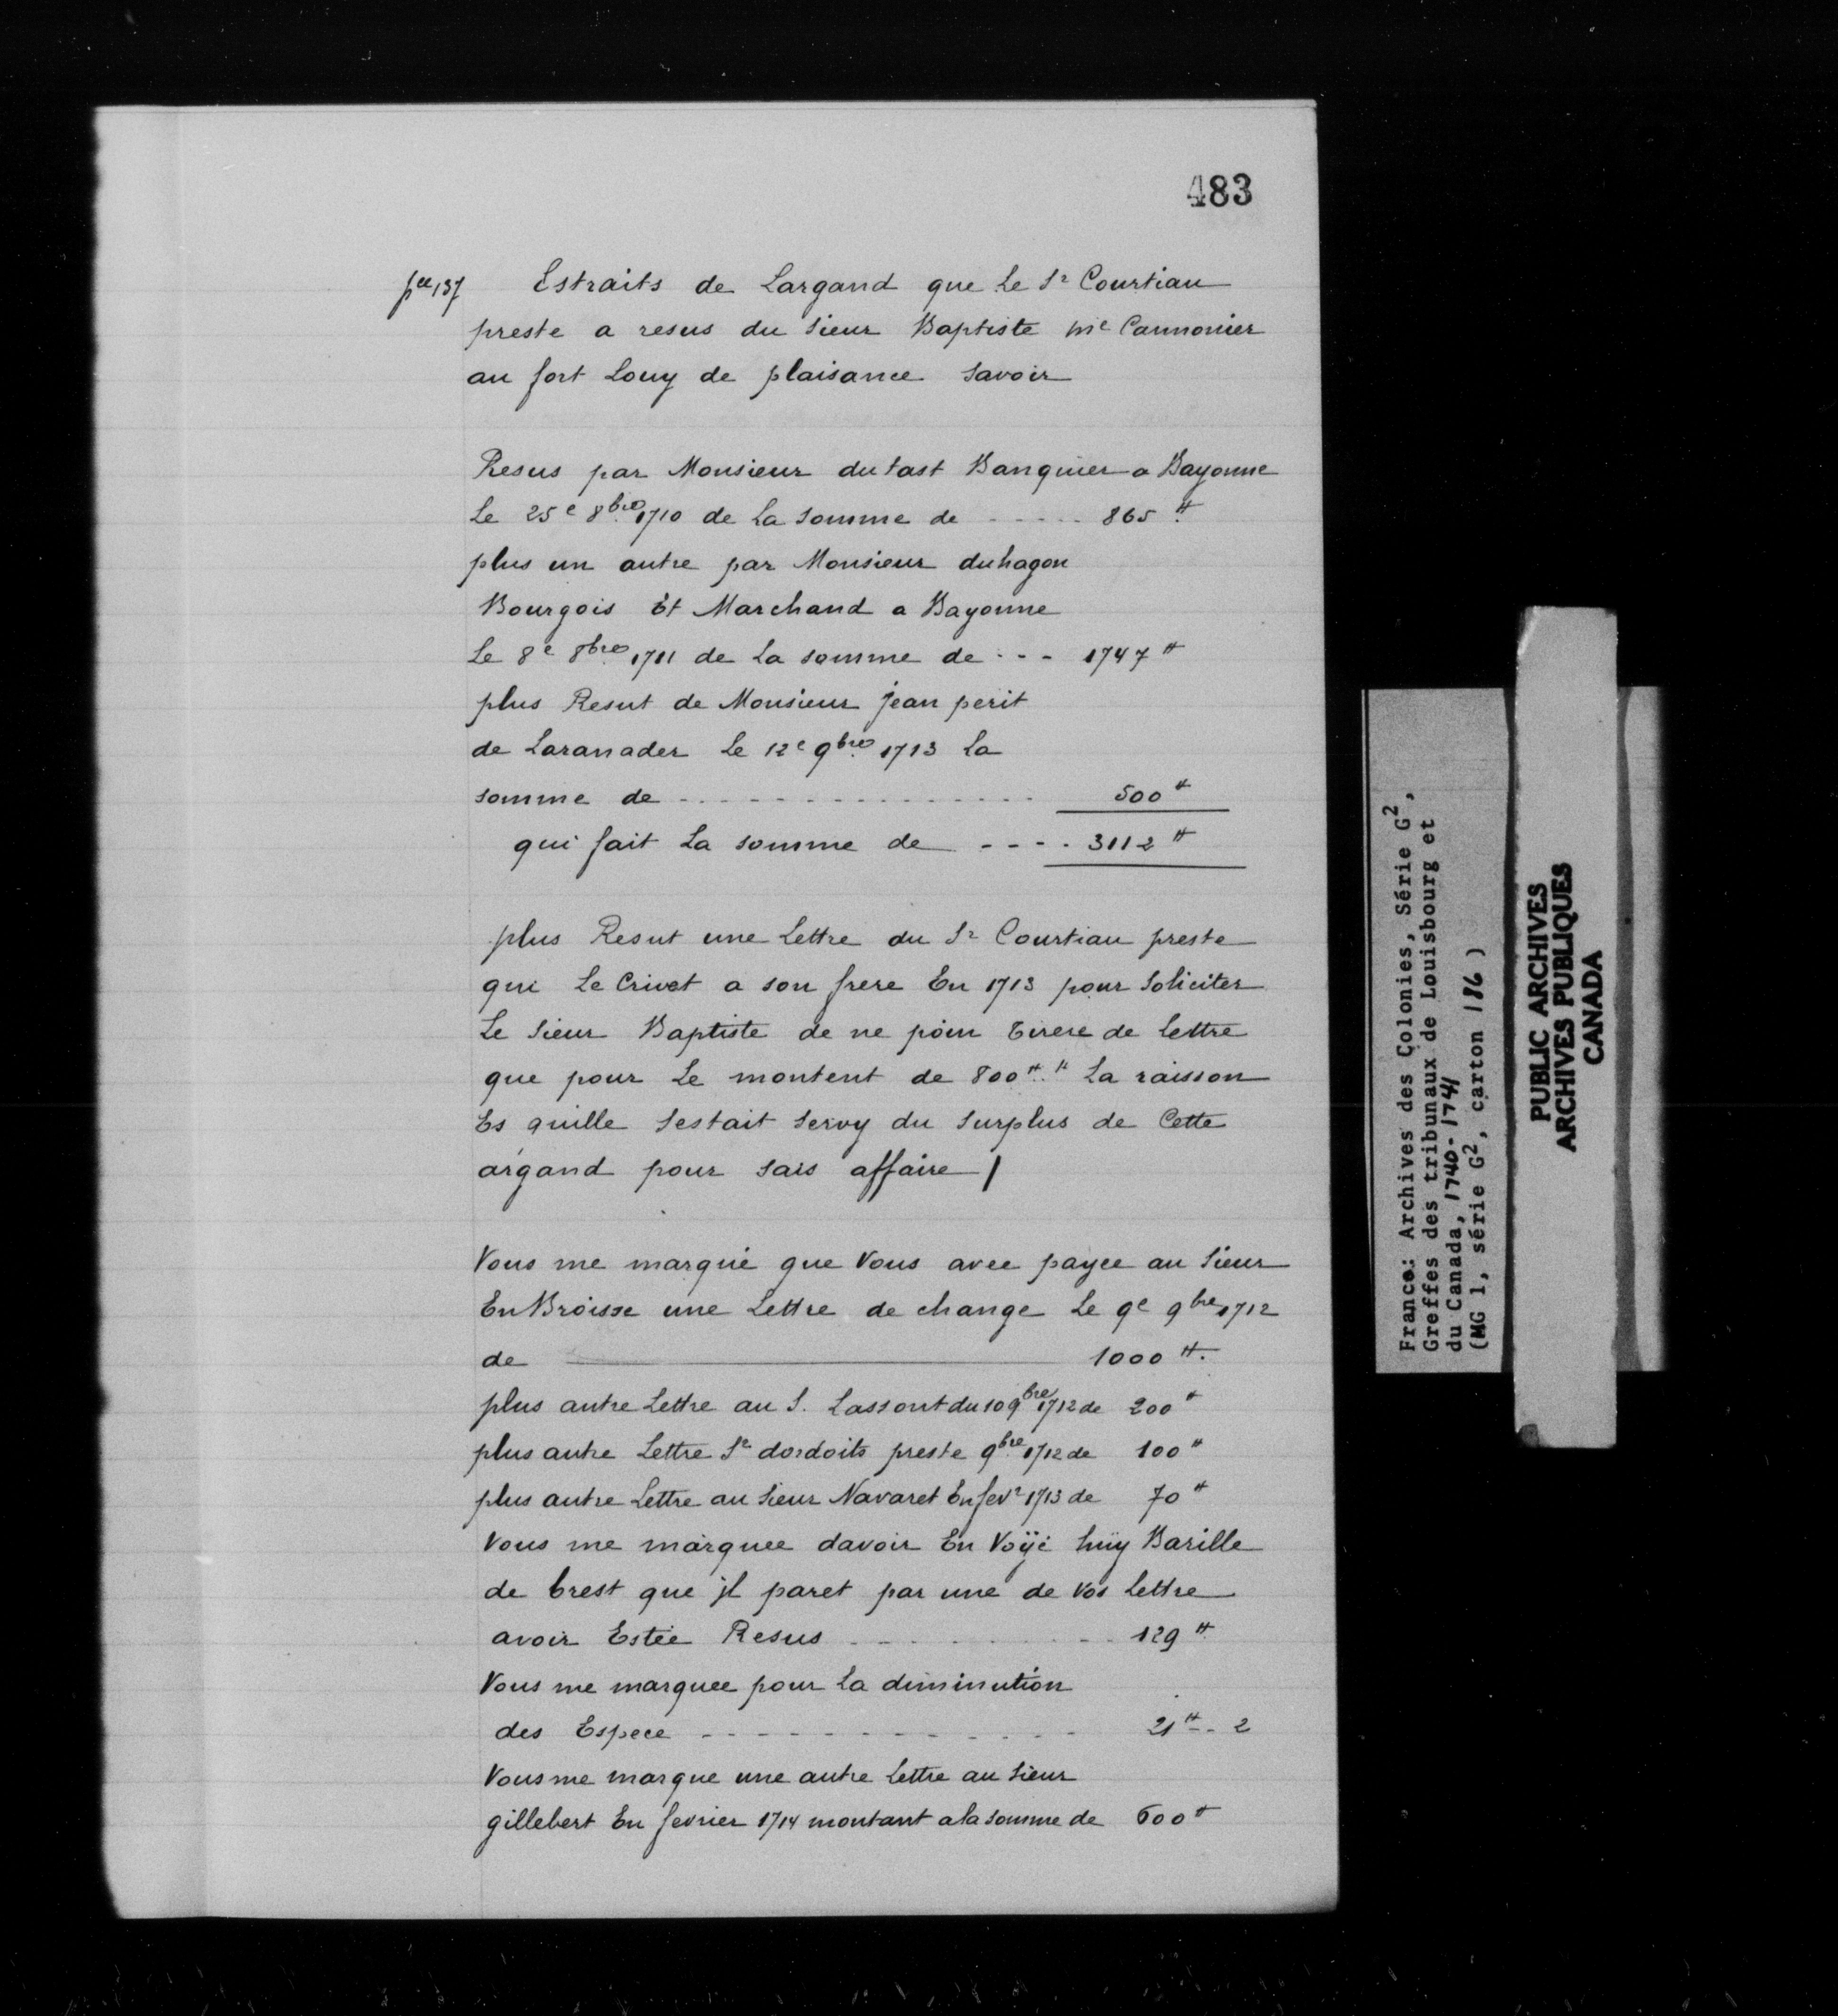 483
pce 137 Estraits de Largand que Le Sr Courtiau
preste a resus du Sieur Baptiste me Cannonier
au fort Louy de plaisance savoir
Resus par Monsieur dutast Banquier a Bayonne
Le 25e 8bre 1710 de La somme de ----- 865 ₶
plus un autre par Monsieur duhagon
Bourgois Et Marchand a Bayonne
Le 8e 8bre 1711 de La somme de --- 1747 ₶
plus Resut de Monsieur jean perit
de Laranader Le 12e 9bre 1713 La
somme de ---------------- 500 ₶
qui fait La somme de ---- 3112 ₶
plus Resut une Lettre du Sr Courtiau preste
qui Le Crivet a son frere En 1713 pour Soliciter
Le Sieur Baptiste de ne poin tirere de Lettre
que pour Le montent de 800 ₶ " La raisson
Es quille Sestait Servy du Surplus de Cette
argand pour sais affaire /
Vous me marquè que Vous avee payee au Sieur
En Broisse une Lettre de change Le 9e 9bre 1712
de 1000 ₶.
plus autre Lettre au S. Lassont du 10 9bre 1712 de 200 ₶
plus autre Lettre Sr dordoits preste 9bre 1712 de 100 ₶
plus autre Lettre au Sieur Navaret En fevr 1713 de 70 ₶
Vous me marquee davoir En Voÿé huÿ Barille
de brest que jl paret par une de Vos Lettre
avoir Estée Resus ---------- 129 ₶
Vous me marquee pour La diminution
des Espece ------------- 21 ₶ -- 2
Vous me marque une autre Lettre au Sieur
gillebert En fevrier 1714 montant a la somme de 600 ₶
France: Archives des Colonies, Série G2,
Greffes des tribunaux de Louisbourg et
du Canada, 1740-1741
(MG 1, série G2, carton 186 )
PUBLIC ARCHIVES
ARCHIVES PUBLIQUES
CANADA